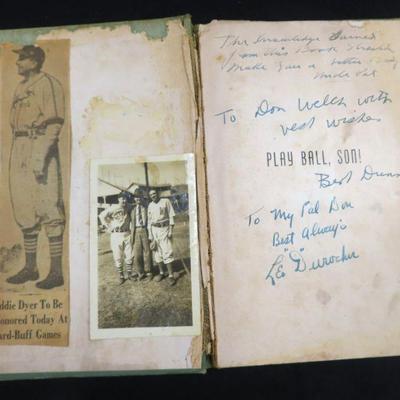 ddie Dyer To Be
onored Today At
ard-Buff Games
The knowledge gained
from this Book should
make you a better
Uncle
To Don Welch with
best wishes
PLAY BALL, SON!
Bert Dunn
To My Pal Don
Best Always
"Leo" Durocher